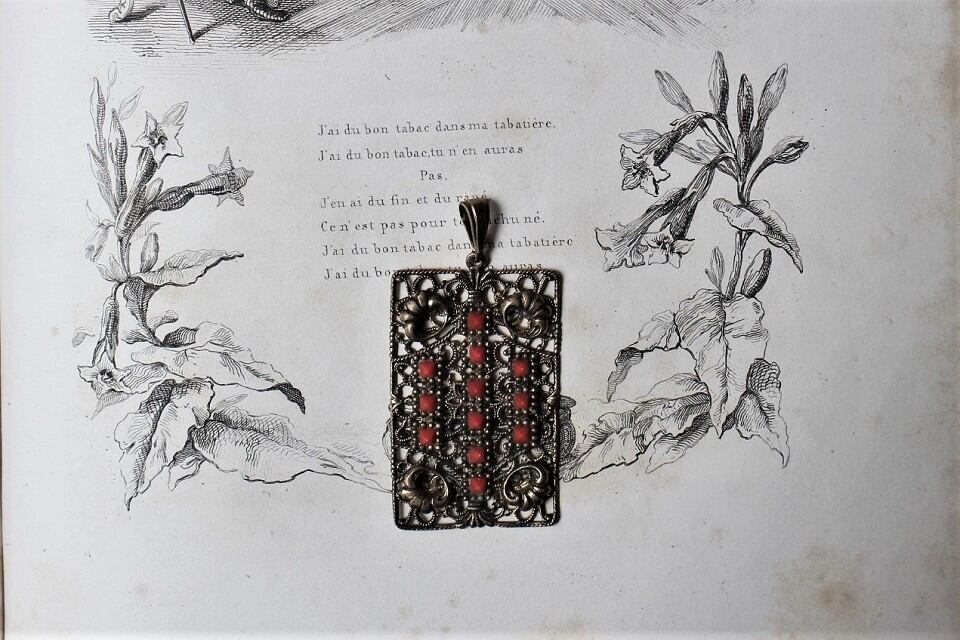 J'ai du bon tabac dans ma tabatière,
J'ai du bon tabac, tu n'en auras
Pas.
J'en ai du fin et du
Ce n'est pas pour né.
J'ai du bon tabac ma tabatière
J'ai du auras